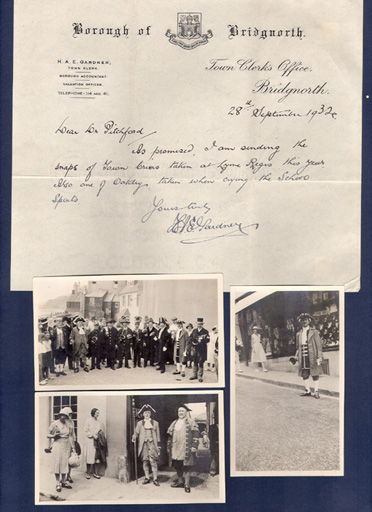 Borough of Bridgnorth.
H. A. E. GARDNER,
TOWN CLERK.
BOROUGH ACCOUNTANT.
VALUATION OFFICER.
Town Clerk's Office,
Bridgnorth.
28th September 1932
Dear Dr Pitchford
As promised, I am sending the
snaps of Town Criers taken at Lyme Regis this year
Also one of Oakley taken when crying the School
Sports
Yours truly
H A E Gardner